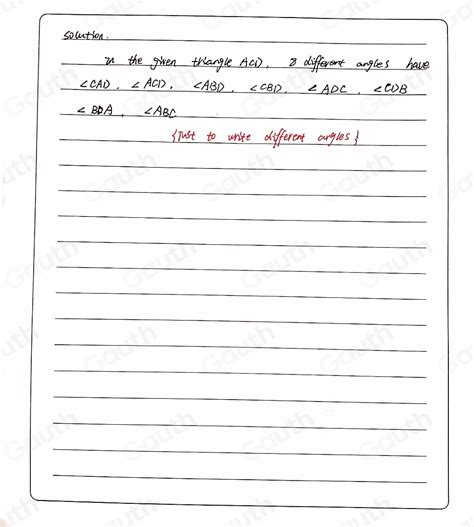 solution.
In the given triangle ACD, 8 different angles have
∠CAD, ∠ACD, ∠ABD, ∠CBD, ∠ADC, ∠CDB
∠BDA, ∠ABC
{Just to write different angles}